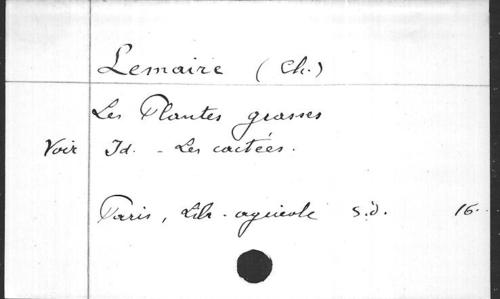 Lemaire (Ch.)
Les Plantes grasses
Voir Id. - Les cactées.
Paris, Lib. agricole s.d. 16.